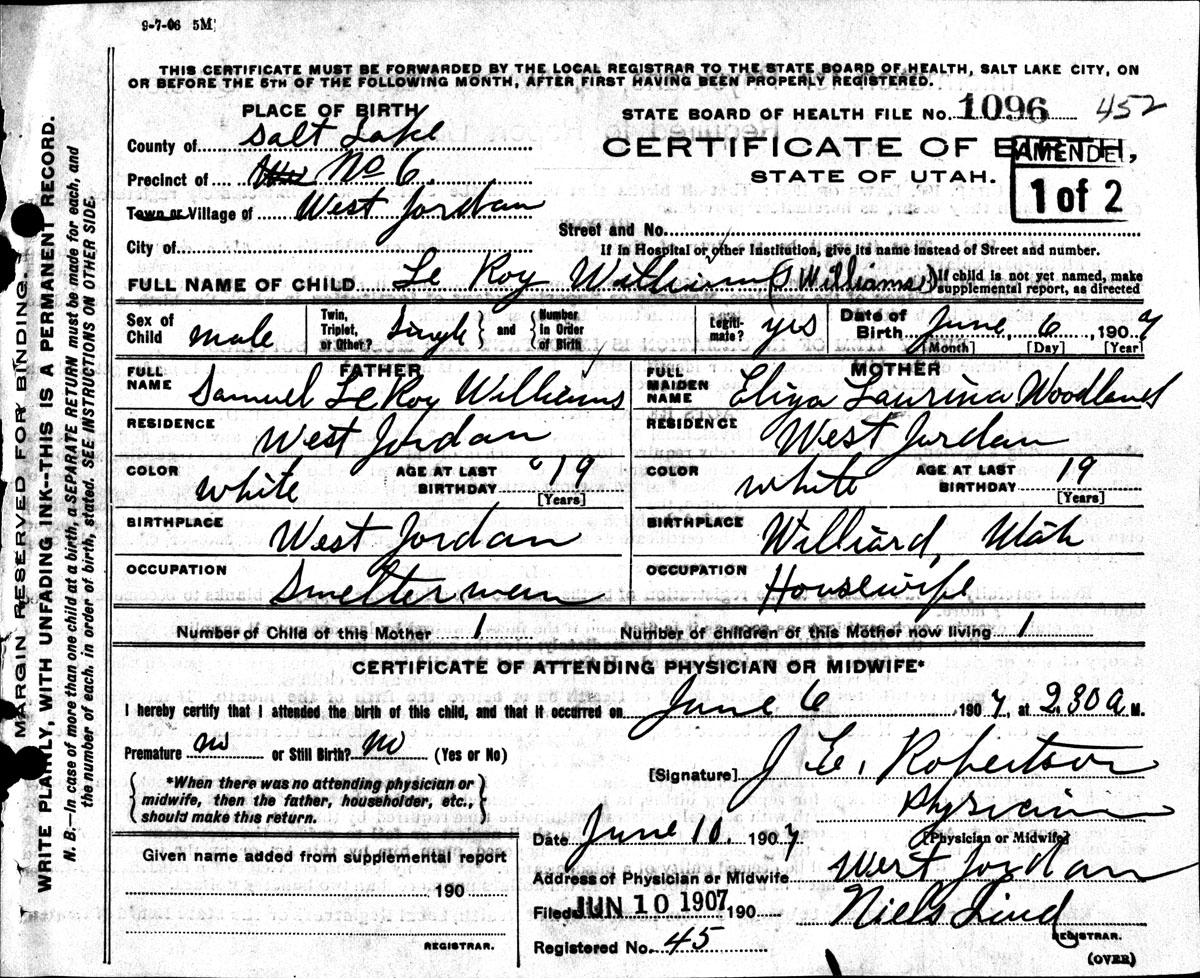 9-7-06 5M
THIS CERTIFICATE MUST BE FORWARDED BY THE LOCAL REGISTRAR TO THE STATE BOARD OF HEALTH, SALT LAKE CITY, ON
OR BEFORE THE 5TH OF THE FOLLOWING MONTH, AFTER FIRST HAVING BEEN PROPERLY REGISTERED.
PLACE OF BIRTH
STATE BOARD OF HEALTH FILE NO. 1096 452
County of Salt Lake
CERTIFICATE OF BIRTH,
AMENDED
Precinct of No 6.
STATE OF UTAH.
1 of 2
Town or Village of West Jordan
Street and No.
City of
If in Hospital or other Institution, give its name instead of Street and number.
FULL NAME OF CHILD Le Roy William (S Williams) If child is not yet named, make
supplemental report, as directed
Sex of Child male Twin, Triplet, or Other? Single and Number in Order of Birth Legiti-mate? yes Date of Birth June 6 1907
[Month] [Day] [Year]
FATHER MOTHER
FULL NAME Samuel LeRoy Williams FULL MAIDEN NAME Eliza Laurina Woodland
RESIDENCE West Jordan RESIDENCE West Jordan
COLOR white AGE AT LAST BIRTHDAY 19 [Years] COLOR white AGE AT LAST BIRTHDAY 19 [Years]
BIRTHPLACE West Jordan BIRTHPLACE Williard, Utah
OCCUPATION Smelterman OCCUPATION Housewife
Number of Child of this Mother 1 Number of children of this Mother now living 1
CERTIFICATE OF ATTENDING PHYSICIAN OR MIDWIFE*
I hereby certify that I attended the birth of this child, and that it occurred on June 6 1907, at 2.30 a M.
Premature no or Still Birth? no (Yes or No)
[Signature] J. E. Robertson
*When there was no attending physician or
midwife, then the father, householder, etc.,
should make this return.
Physician
[Physician or Midwife]
Date June 10, 1907
Given name added from supplemental report
190
REGISTRAR.
Address of Physician or Midwife West Jordan
Filed JUN 10 1907 190 Niels Lind
REGISTRAR.
Registered No. 45
(OVER)
MARGIN RESERVED FOR BINDING.
WRITE PLAINLY, WITH UNFADING INK--THIS IS A PERMANENT RECORD.
N. B.—In case of more than one child at a birth, a SEPARATE RETURN must be made for each, and
the number of each, in order of birth, stated. SEE INSTRUCTIONS ON OTHER SIDE.